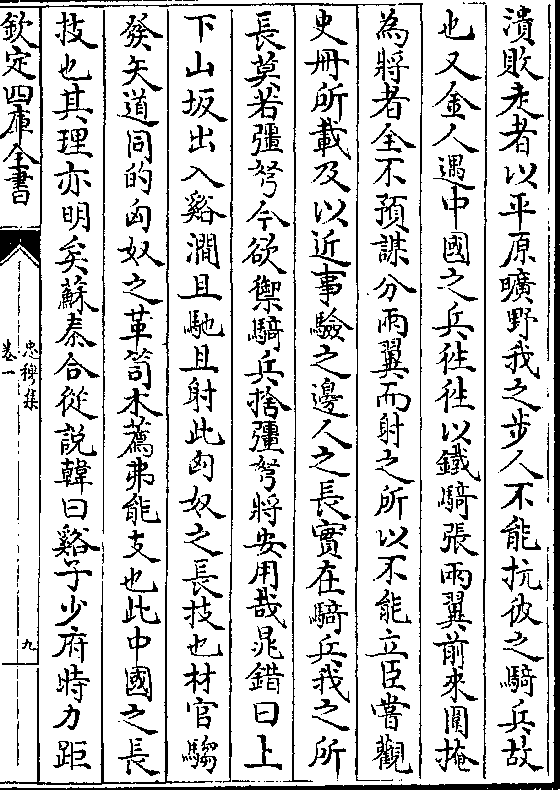 潰敗走者以平原曠野我之步人不能抗彼之騎兵故
也又金人遇中國之兵徃徃以鐵騎張兩翼前來圍掩
為將者全不預謀分兩翼而射之所以不能立臣嘗觀
史冊所載及以近事驗之邊人之長實在騎兵我之所
長莫若彊弩今欲禦騎兵捨彊弩將安用哉晁錯曰上
下山坂出入谿澗且馳且射此匈奴之長技也材官騶
發矢道同的匈奴之革笥木薦弗能支也此中國之長
技也其理亦明矣蘇秦合從說韓曰谿子少府時力距
欽定四庫全書
忠穆集
卷一
九